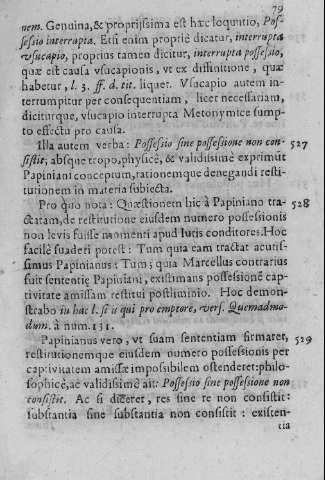 79
nem. Genuina, & proprijssima est hæc loquutio, Pos-
sessio interrupta. Etsi enim propriè dicatur, interrupta
vsucapio, proprius tamen dicitur, interrupta possessio,
quæ est causa vsucapionis, vt ex diffinitione, quæ
habetur, l. 3. ff. d. tit. liquet. Vsucapio autem in-
terrumpitur per consequentiam, licet necessariam,
diciturque, vsucapio interrupta Metonymicè sump-
to effectu pro causa.
Illa autem verba: Possessio sine possessione non con- 527
sistit; absque tropo, physicè, & validissimè exprimũt
Papiniani conceptum, rationemque denegandi resti-
tutionem in materia subiecta.
Pro quo nota: Quæstionem hìc à Papiniano tra- 528
ctatam, de restitutione eiusdem numero possessionis
non levis fuisse momenti apud Iuris conditores. Hoc
facilè suaderi potest: Tum quia eam tractat acutis-
simus Papinianus: Tum; quia Marcellus contrarius
fuit sententię Papiniani, existimans possessionẽ cap-
tivitate amissam restitui postliminio. Hoc demon-
strabo in hac l. si is qui pro emptore, vers. Quemadmo-
dum. à num. 131.
Papinianus vero, vt suam sententiam firmaret, 529
restitutionemque eiusdem numero possessionis per
captivitatem amissæ impossibilem ostenderet: philo-
sophicè, ac validissimè ait: Possessio sine possessione non
consistit. Ac si diceret, res sine re non consistit:
substantia sine substantia non consistit: existen-
tia